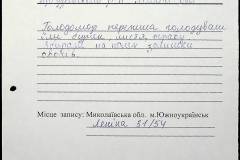 Голодомор пережила голодували
їли бурки, листя траву
збирали на полях залишки
овочів
Місце запису: Миколаївська обл. м.Южноукраїнськ
Леніна 31/54